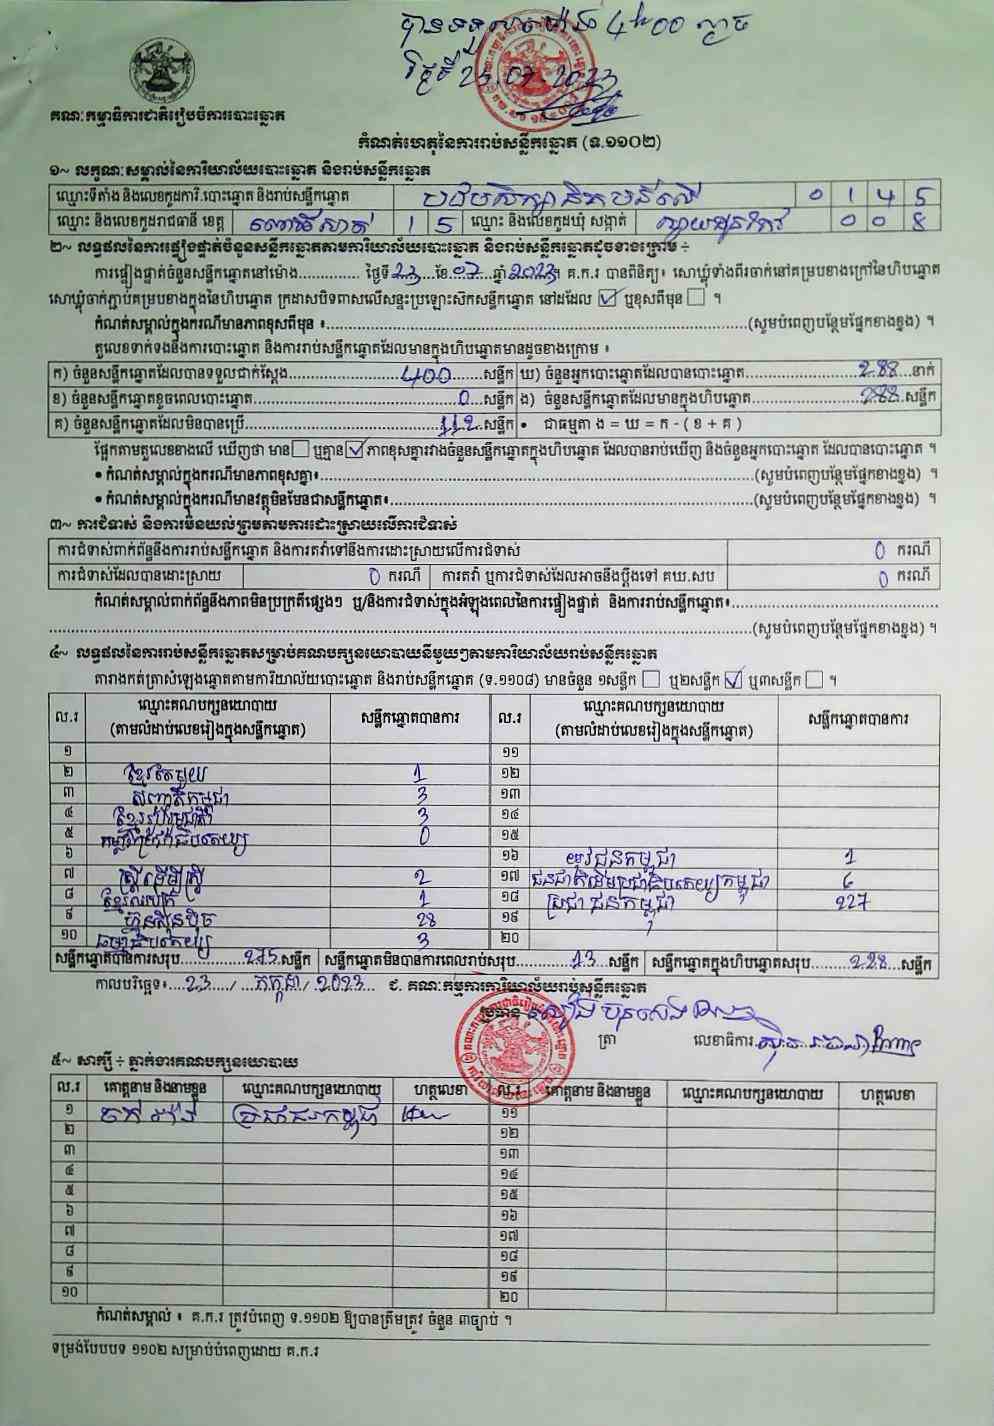 បានទទួលម៉ោង 4h00 ល្ងាច
ថ្ងៃទី 23.07.2023
គណៈកម្មាធិការជាតិរៀបចំការបោះឆ្នោត
កំណត់ហេតុនៃការរាប់សន្លឹកឆ្នោត (ទ.១១០២)
១~ លក្ខណៈសម្គាល់នៃការិយាល័យបោះឆ្នោត និងរាប់សន្លឹកឆ្នោត
ឈ្មោះទីតាំង និងលេខកូដការិ.បោះឆ្នោត និងរាប់សន្លឹកឆ្នោត 0 1 4 5
ឈ្មោះ និងលេខកូដរាជធានី ខេត្ត ពោធិ៍សាត់ 1 5 ឈ្មោះ និងលេខកូដឃុំ សង្កាត់ 0 0 8
២~ លទ្ធផលនៃការផ្ទៀងផ្ទាត់ចំនួនសន្លឹកឆ្នោតតាមការិយាល័យបោះឆ្នោត និងរាប់សន្លឹកឆ្នោតដូចខាងក្រោម ÷
ការផ្ទៀងផ្ទាត់ចំនួនសន្លឹកឆ្នោតនៅម៉ោង.............. ថ្ងៃទី 23...ខែ.07...ឆ្នាំ 2023. គ.ក.រ បានពិនិត្យ៖ សោឃ្លុំទាំងពីរចាក់នៅគម្របខាងក្រៅនៃហិបឆ្នោត
សោឃ្លុំចាក់ភ្ជាប់គម្របខាងក្នុងនៃហិបឆ្នោត ក្រដាសបិទពាសលើសន្ទះប្រឡោះសិកសន្លឹកឆ្នោត នៅដដែល ☑ ឬខុសពីមុន ☐ ។
កំណត់សម្គាល់ក្នុងករណីមានភាពខុសពីមុន ៖....................(សូមបំពេញបន្ថែមផ្នែកខាងខ្នង) ។
តួលេខទាក់ទងនឹងការបោះឆ្នោត និងការរាប់សន្លឹកឆ្នោតដែលមានក្នុងហិបឆ្នោតមានដូចខាងក្រោម ៖
ក) ចំនួនសន្លឹកឆ្នោតដែលបានទទួលជាក់ស្ដែង.......400.......សន្លឹក ឃ) ចំនួនអ្នកបោះឆ្នោតដែលបានបោះឆ្នោត.......288...នាក់
ខ) ចំនួនសន្លឹកឆ្នោតខូចពេលបោះឆ្នោត.......0...សន្លឹក ង) ចំនួនសន្លឹកឆ្នោតដែលមានក្នុងហិបឆ្នោត.......288.សន្លឹក
គ) ចំនួនសន្លឹកឆ្នោតដែលមិនបានប្រើ.......112.សន្លឹក • ជាធម្មតា ង = ឃ = ក - ( ខ + គ )
ផ្អែកតាមតួលេខខាងលើ ឃើញថា មាន ☐ ឬគ្មាន ☑ ភាពខុសគ្នារវាងចំនួនសន្លឹកឆ្នោតក្នុងហិបឆ្នោត ដែលបានរាប់ឃើញ និងចំនួនអ្នកបោះឆ្នោត ដែលបានបោះឆ្នោត ។
• កំណត់សម្គាល់ក្នុងករណីមានភាពខុសគ្នា៖....................(សូមបំពេញបន្ថែមផ្នែកខាងខ្នង) ។
• កំណត់សម្គាល់ក្នុងករណីមានវត្ថុមិនមែនជាសន្លឹកឆ្នោត៖....................(សូមបំពេញបន្ថែមផ្នែកខាងខ្នង) ។
៣~ ការជំទាស់ និងការមិនយល់ព្រមតាមការដោះស្រាយលើការជំទាស់
ការជំទាស់ពាក់ព័ន្ធនឹងការរាប់សន្លឹកឆ្នោត និងការតវ៉ាទៅនឹងការដោះស្រាយលើការជំទាស់ 0 ករណី
ការជំទាស់ដែលបានដោះស្រាយ 0 ករណី ការតវ៉ា ឬការជំទាស់ដែលអាចនឹងប្ដឹងទៅ គឃ.សប 0 ករណី
កំណត់សម្គាល់ពាក់ព័ន្ធនឹងភាពមិនប្រក្រតីផ្សេងៗ ឬ/និងការជំទាស់ក្នុងអំឡុងពេលនៃការផ្ទៀងផ្ទាត់ និងការរាប់សន្លឹកឆ្នោត៖....................
....................(សូមបំពេញបន្ថែមផ្នែកខាងខ្នង) ។
៤~ លទ្ធផលនៃការរាប់សន្លឹកឆ្នោតសម្រាប់គណបក្សនយោបាយនីមួយៗតាមការិយាល័យរាប់សន្លឹកឆ្នោត
តារាងកត់ត្រាសំឡេងឆ្នោតតាមការិយាល័យបោះឆ្នោត និងរាប់សន្លឹកឆ្នោត (ទ.១១០៨) មានចំនួន ១សន្លឹក ☐ ឬ២សន្លឹក ☑ ឬ៣សន្លឹក ☐ ។
ល.រ ឈ្មោះគណបក្សនយោបាយ (តាមលំដាប់លេខរៀងក្នុងសន្លឹកឆ្នោត) សន្លឹកឆ្នោតបានការ ល.រ ឈ្មោះគណបក្សនយោបាយ (តាមលំដាប់លេខរៀងក្នុងសន្លឹកឆ្នោត) សន្លឹកឆ្នោតបានការ
១ ១១
២ ខ្មែរតែមួយ 1 ១២
៣ សញ្ជាតិកម្ពុជា 3 ១៣
៤ ខ្មែររួបរួមជាតិ 3 ១៤
៥ កម្លាំងប្រជាធិបតេយ្យ 0 ១៥
៦ ១៦ យុវជនកម្ពុជា 1
៧ ស្ត្រីដើម្បីស្ត្រី 2 ១៧ ជនជាតិដើមប្រជាធិបតេយ្យកម្ពុជា 6
៨ ខ្មែរឈប់ក្រ 1 ១៨ ប្រជាជនកម្ពុជា 227
៩ ហ៊្វុនស៊ិនប៉ិច 28 ១៩
១០ ធម្មាធិបតេយ្យ 3 ២០
សន្លឹកឆ្នោតបានការសរុប.......275.សន្លឹក សន្លឹកឆ្នោតមិនបានការពេលរាប់សរុប.......13...សន្លឹក សន្លឹកឆ្នោតក្នុងហិបឆ្នោតសរុប.......288...សន្លឹក
កាលបរិច្ឆេទ៖....23..../...កក្កដា./.2023.... ជ. គណៈកម្មការការិយាល័យរាប់សន្លឹកឆ្នោត
ប្រធាន
ត្រា លេខាធិការ
៥~ សាក្សី ÷ ភ្នាក់ងារគណបក្សនយោបាយ
ល.រ គោត្តនាម និងនាមខ្លួន ឈ្មោះគណបក្សនយោបាយ ហត្ថលេខា ល.រ គោត្តនាម និងនាមខ្លួន ឈ្មោះគណបក្សនយោបាយ ហត្ថលេខា
១ ប្រជាជនកម្ពុជា ១១
២ ១២
៣ ១៣
៤ ១៤
៥ ១៥
៦ ១៦
៧ ១៧
៨ ១៨
៩ ១៩
១០ ២០
កំណត់សម្គាល់ ៖ គ.ក.រ ត្រូវបំពេញ ទ.១១០២ ឱ្យបានត្រឹមត្រូវ ចំនួន ៣ច្បាប់ ។
ទម្រង់បែបបទ ១១០២ សម្រាប់បំពេញដោយ គ.ក.រ